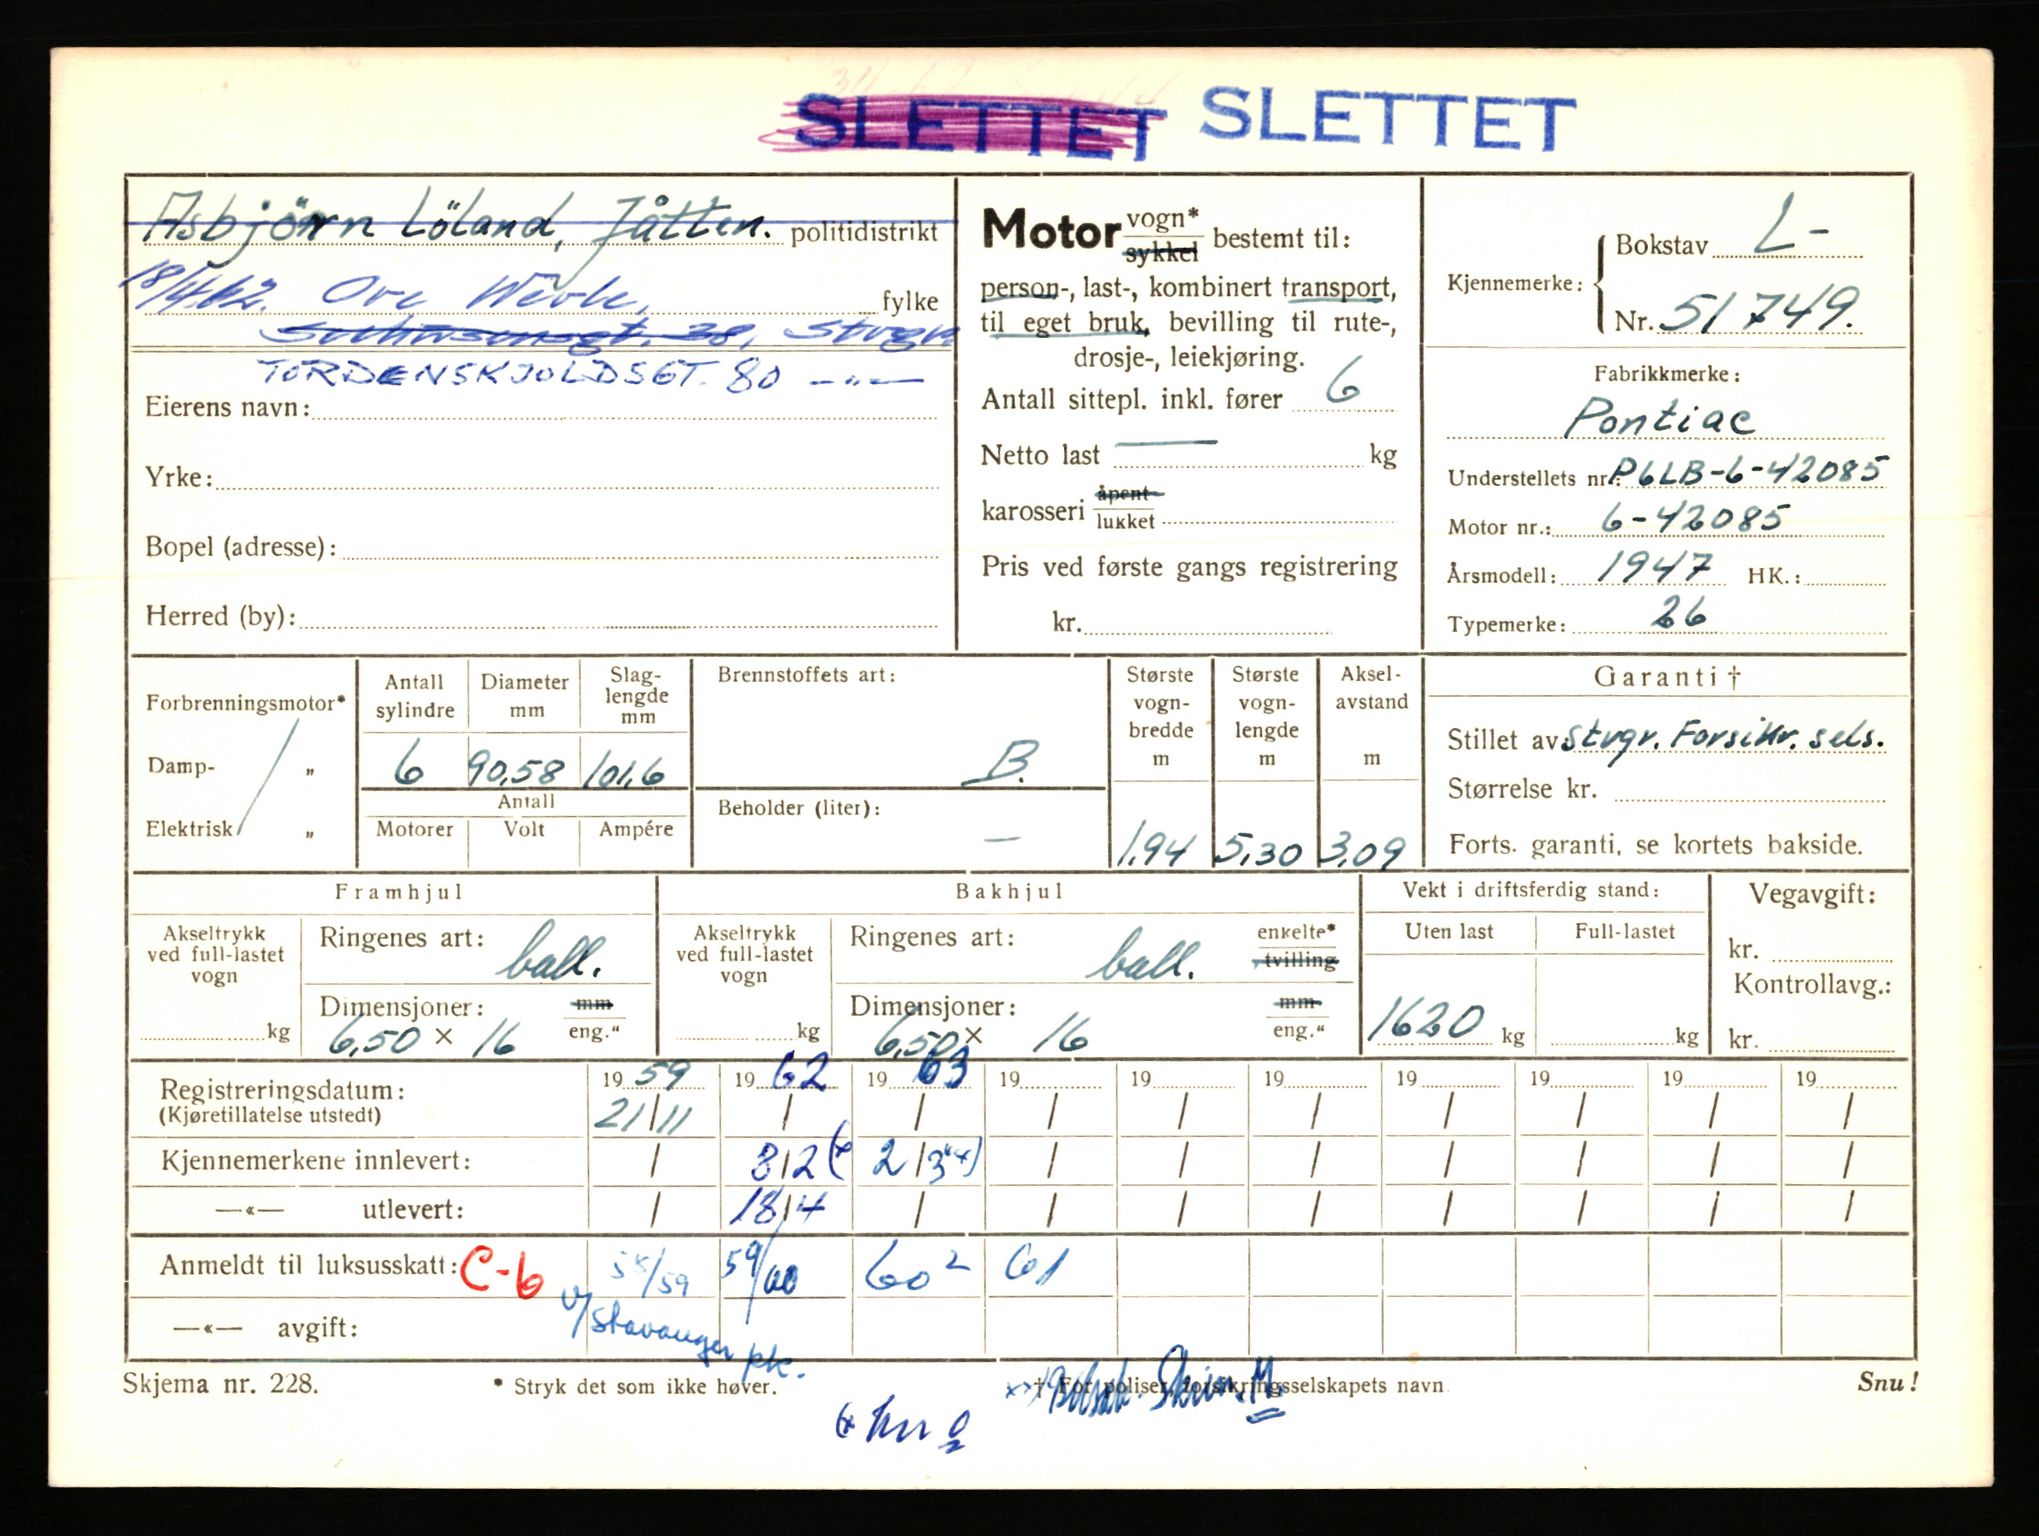 SLETTET SLETTET
Asbjörn Löland, Jåtten. politidistrikt
18/4 62. Ove fylke
Stvgr.
TORDENSKJOLDSGT. 80 —"—
Eierens navn:
Yrke:
Bopel (adresse):
Herred (by):
Motor vogn* / sykkel bestemt til:
person-, last-, kombinert transport,
til eget bruk, bevilling til rute-,
drosje-, leiekjøring.
Antall sittepl. inkl. fører 6
Netto last — kg
karosseri åpent / lukket
Pris ved første gangs registrering
kr.
Kjennemerke: Bokstav L-
Nr. 51749.
Fabrikkmerke:
Pontiac
Understellets nr.: P6LB-6-42085
Motor nr.: 6-42085
Årsmodell: 1947 HK.:
Typemerke: 26
Forbrenningsmotor*
Damp- „
Elektrisk „
Antall sylindre 6
Diameter mm 90,58
Slag-lengde mm 101,6
Antall
Motorer Volt Ampére
Brennstoffets art: B.
Beholder (liter): —
Største vogn-bredde m 1,94
Største vogn-lengde m 5,30
Aksel-avstand m 3,09
Garanti †
Stillet av Stvgr. Forsikr. sels.
Størrelse kr.
Forts. garanti, se kortets bakside.
Framhjul
Akseltrykk ved full-lastet vogn kg
Ringenes art: ball.
Dimensjoner: mm / eng."
6,50 × 16
Bakhjul
Akseltrykk ved full-lastet vogn kg
Ringenes art: ball. enkelte* / tvilling
Dimensjoner: mm / eng."
6,50 × 16
Vekt i driftsferdig stand:
Uten last 1620 kg
Full-lastet kg
Vegavgift:
kr.
Kontrollavg.:
kr.
Registreringsdatum: 19 59 19 62 19 63 19 19 19 19 19 19 19
(Kjøretillatelse utstedt) 21/11 / / / / / / / / /
Kjennemerkene innlevert: / 8/2 (x 2/3 xx) / / / / / / /
—«— utlevert: / 18/4 / / / / / / / /
Anmeldt til luksusskatt: C-6 58/59 59/60 60 2 61
v/Stavanger pk.
—«— avgift:
Skjema nr. 228.
* Stryk det som ikke høver.
† For poliser, forsikringsselskapets navn
Snu!